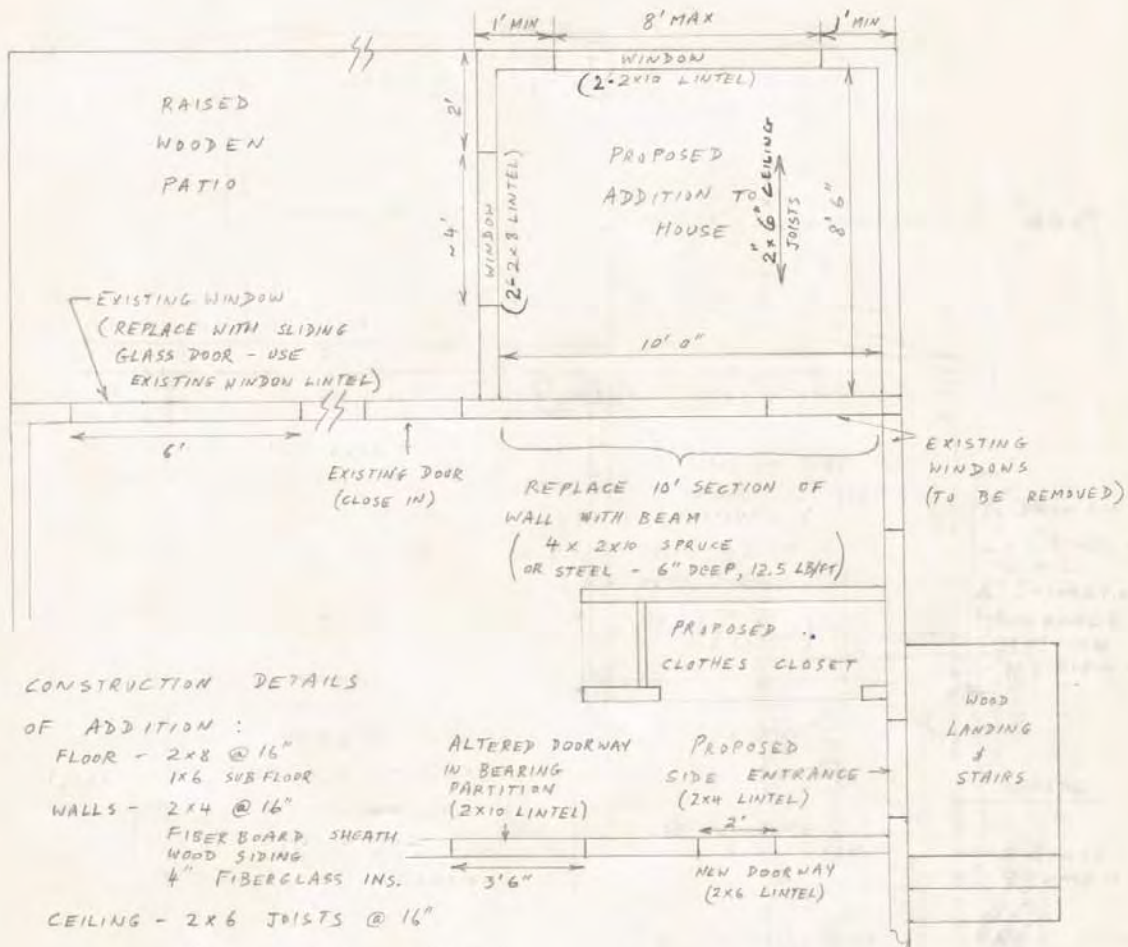 1' MIN
8' MAX
1' MIN
WINDOW
(2-2x10 LINTEL)
RAISED
WOODEN
PATIO
2'
~4'
WINDOW
(2-2x8 LINTEL)
PROPOSED
ADDITION TO
HOUSE
2x6" CEILING
JOISTS
8' 6"
10' 0"
EXISTING WINDOW
(REPLACE WITH SLIDING
GLASS DOOR - USE
EXISTING WINDOW LINTEL)
6'
EXISTING DOOR
(CLOSE IN)
REPLACE 10' SECTION OF
WALL WITH BEAM
(4 x 2x10 SPRUCE
OR STEEL - 6" DEEP, 12.5 LB/FT)
EXISTING
WINDOWS
(TO BE REMOVED)
PROPOSED
CLOTHES CLOSET
WOOD
LANDING
&
STAIRS
CONSTRUCTION DETAILS
OF ADDITION :
FLOOR - 2x8 @ 16"
1x6 SUBFLOOR
WALLS - 2x4 @ 16"
FIBERBOARD SHEATH
WOOD SIDING
4" FIBERGLASS INS.
CEILING - 2x6 JOISTS @ 16"
ALTERED DOORWAY
IN BEARING
PARTITION
(2x10 LINTEL)
3'6"
PROPOSED
SIDE ENTRANCE
(2x4 LINTEL)
2'
NEW DOORWAY
(2x6 LINTEL)